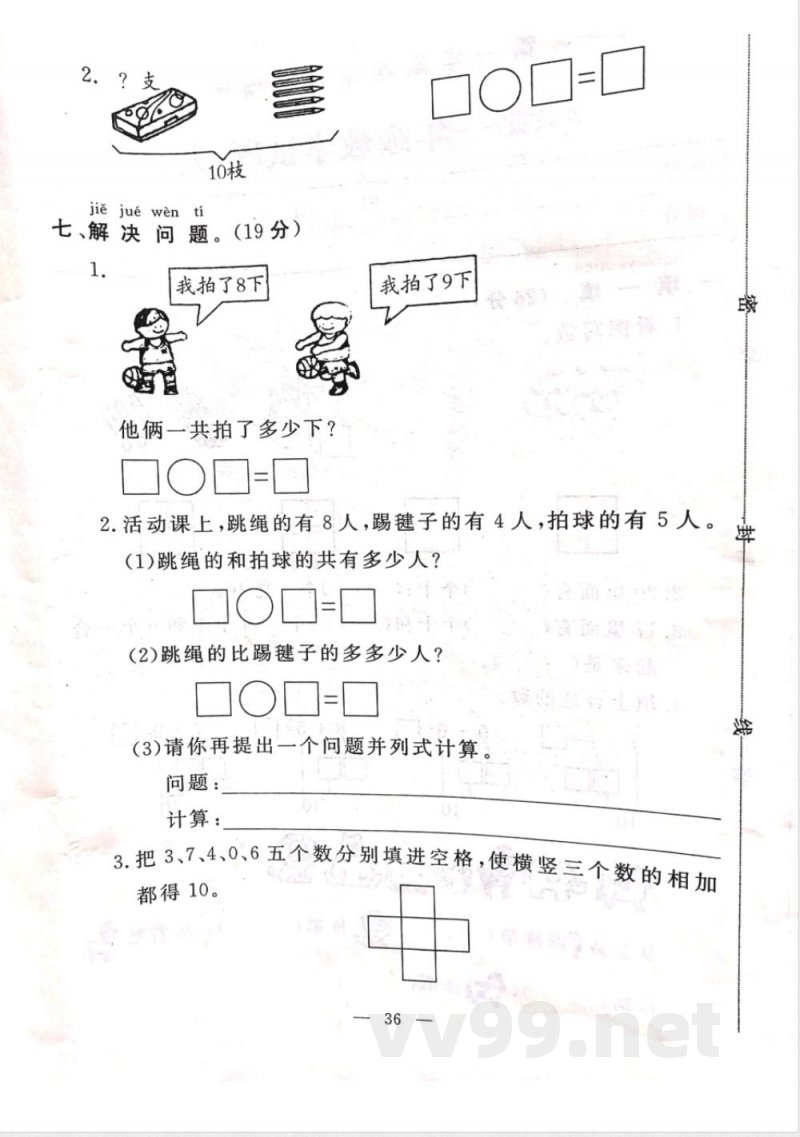 2. ？支
□○□=□
10枝
jiě jué wèn tí
七、解决问题。(19分)
1.
我拍了8下
我拍了9下
他俩一共拍了多少下？
□○□=□
2.活动课上，跳绳的有8人，踢毽子的有4人，拍球的有5人。
(1)跳绳的和拍球的共有多少人？
□○□=□
(2)跳绳的比踢毽子的多多少人？
□○□=□
(3)请你再提出一个问题并列式计算。
问题：
计算：
3.把3、7、4、0、6五个数分别填进空格，使横竖三个数的相加
都得10。
— 36 —
密
封
线
vv99.net